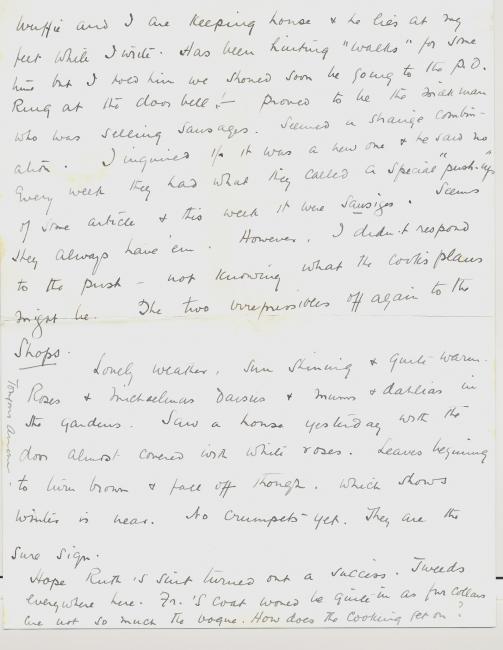 Wuffie and I are keeping house & he lies at my
feet while I write. Has been hinting "walks" for some
time but I told him we should soon be going to the P.O.
Ring at the door bell! — proved to be the
who was selling sausages. Seemed a strange combin-
ation. I inquired if it was a new one & he said no
Every week they had what they called a special "push-up"
of some article & this week it were sausiges. Seems
they always have 'em. However, I didn't respond
to the push — not knowing what the cook's plans
might be. The two irrepressibles off again to the
Shops.
Lonely weather, sun shining & quite warm.
Roses & Michaelmas daisies & mums & dahlias in
the gardens. Saw a house yesterday with the
door almost covered with white roses. Leaves begining
to turn brown & fall off though, which shows
winter is near. No crumpets yet. They are the
sure sign.
Hope Ruth's suit turned out a success. Tweeds
everywhere here. Fr.'s coat would be quite in as fur collars
are not so much the vogue. How does the cooking get on?